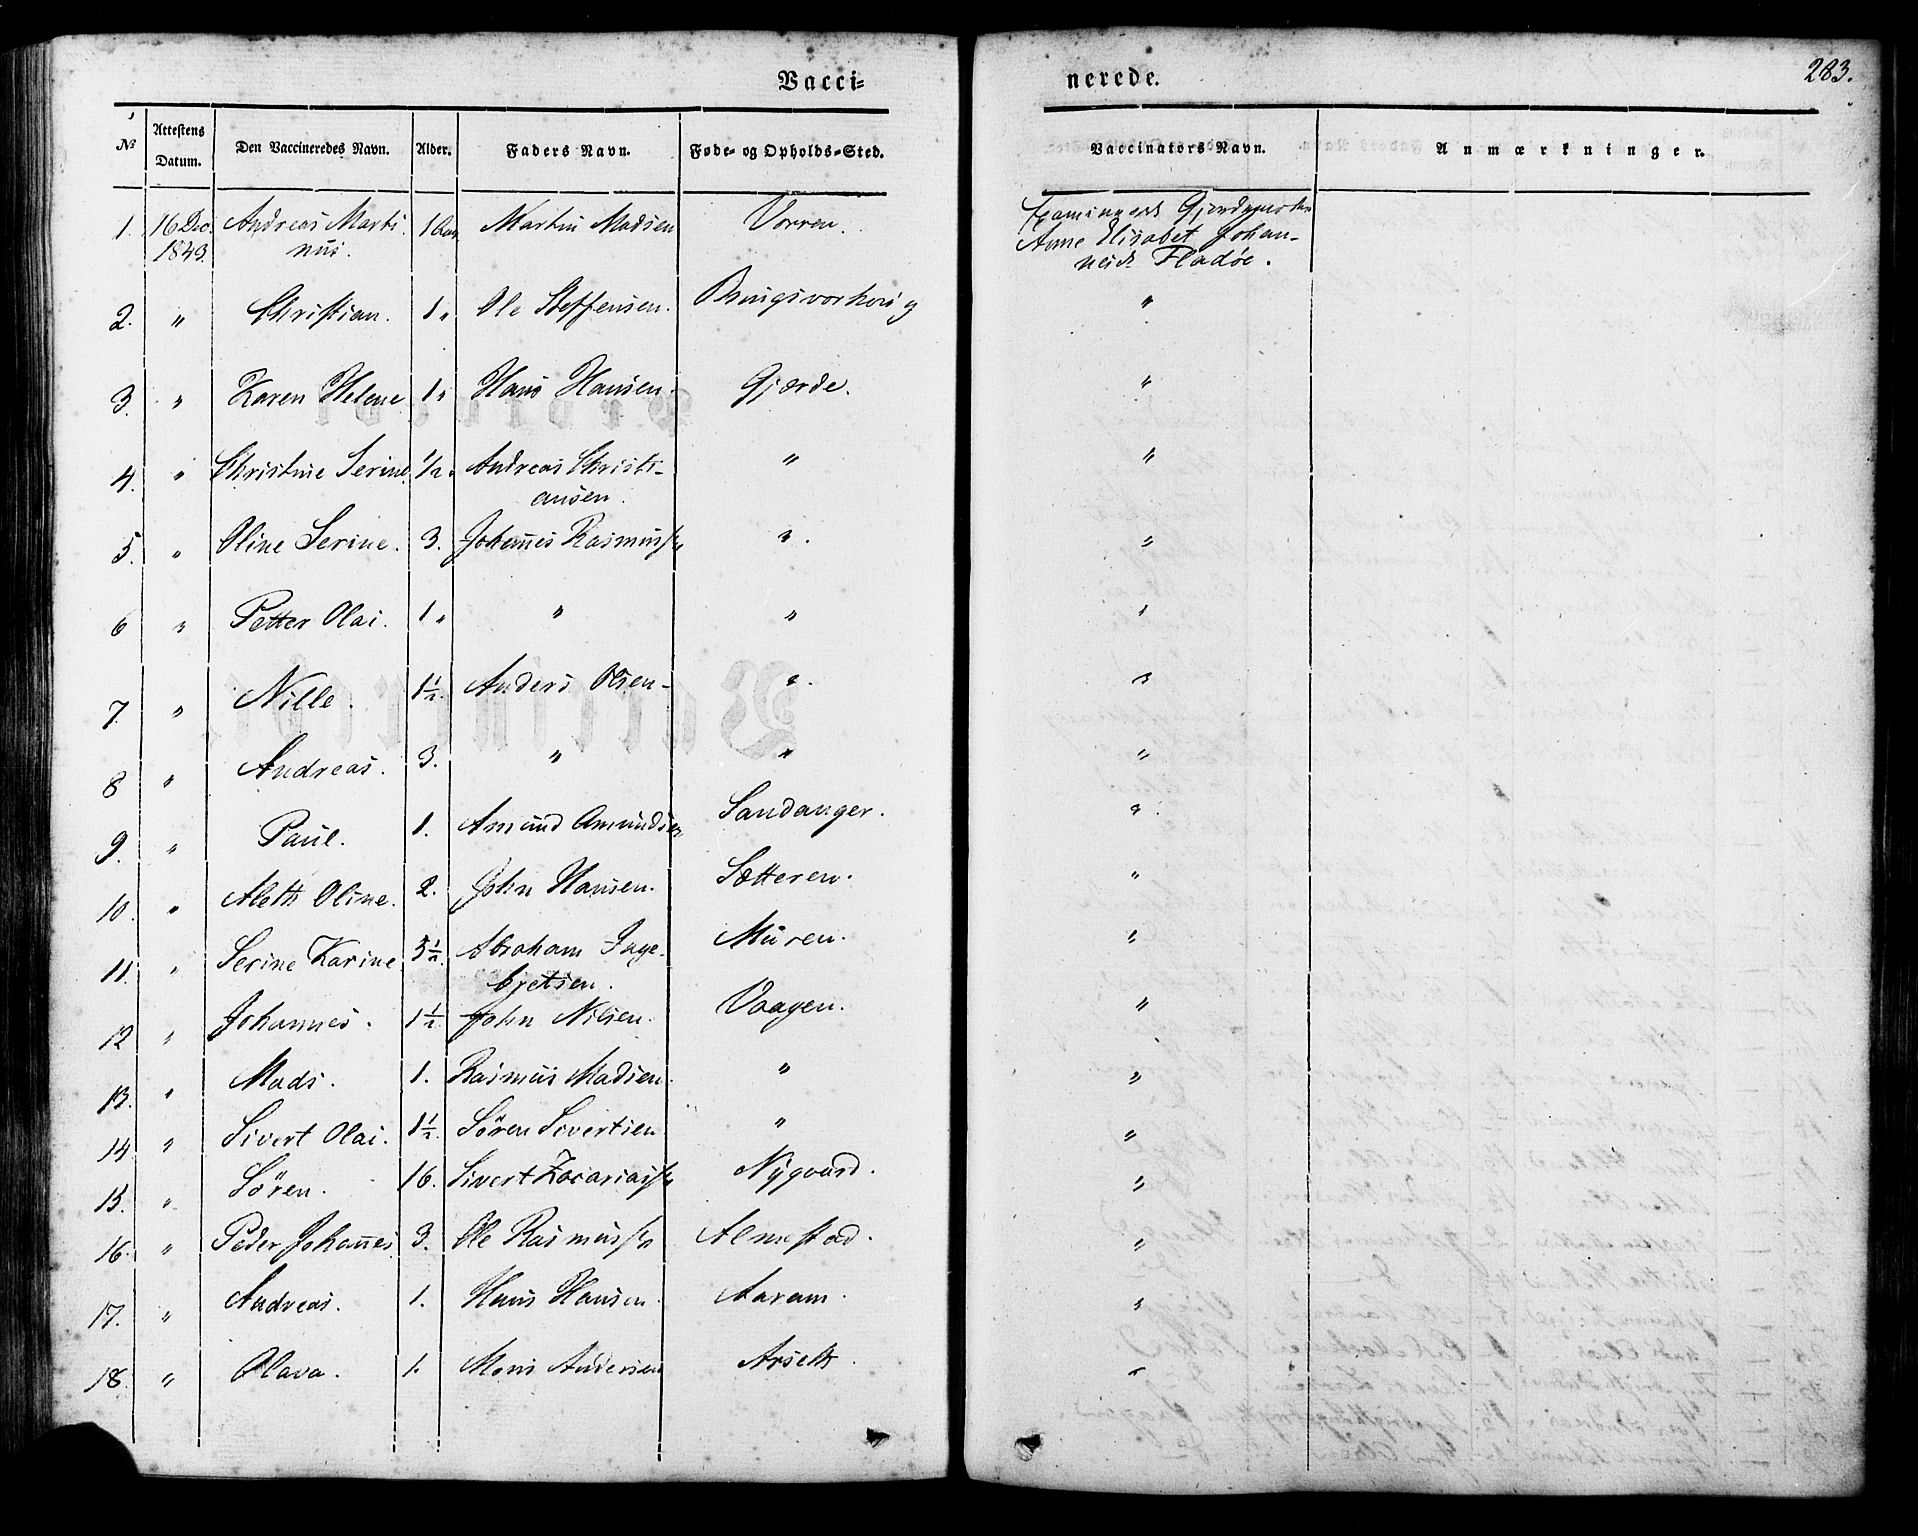 283.
Vaccinerede.
№ | Attestens Datum. | Den Vaccineredes Navn. | Alder. | Faders Navn. | Føde- og Opholds-Sted. | Vaccinators Navn. | Anmærkninger.
1. | 16 Dec. | Andreas Marti | 1 Aar | Martin Madsen | Vorren. | Gjordemoder
1843. | nus. | Anne Elisabet Johan-
nesd. Fladøe.
2. | " | Christian. | 1 " | Ole Steffensen. | "
3. | " | Karen Helene | 1 " | Hans Hansen. | Gjærde. | "
4. | " | Christine Serine | 1/2 " | Andreas Christi- | " | "
ansen.
5 | " | Oline Serine. | 3. | Johannes Rasmuss | " . | "
6 | " | Petter Olai. | 1 " | " | " | "
7. | " | Nille. | 1 1/2. | Anders Olsen | " . | "
8 | " | Andreas. | 3. | " | " | "
9. | " | Paul. | 1. | Amund Amundsen | Sandanger. | "
10. | " | Aleth Oline. | 2. | John Hansen. | Sætteren. | "
11. | " | Serine Karine | 3 1/2. | Abraham Inge- | Muren. | "
bretsen.
12 | " | Johannes. | 1 1/2. | John Nilsen. | Vaagen. | "
13. | " | Mads. | 1. | Rasmus Madsen. | " | "
14 | " | Sivert Olai. | 1 1/2. | Sören Sivertsen | " | "
15. | " | Sören. | 16. | Sivert Zacariass | Nÿgaard. | "
16. | " | Peder Johannes | 3. | Ole Rasmuss | Almestad. | "
17. | " | Andreas. | 1. | Hans Hansen. | Aaram. | "
18. | " | Olava. | 1. | Mons Andersen | Arseth. | "